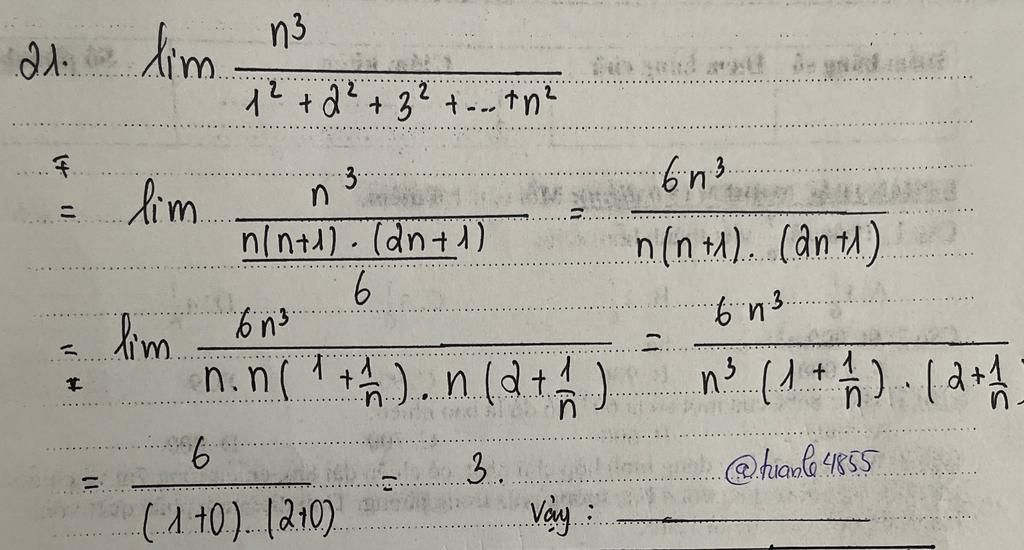 21. lim n³ / (1² + 2² + 3² + ... + n²)
= lim n³ / (n(n+1).(2n+1) / 6) = 6n³ / (n(n+1).(2n+1))
= lim 6n³ / (n.n(1 + 1/n).n(2 + 1/n)) = 6n³ / (n³(1 + 1/n).(2 + 1/n))
= 6 / ((1+0).(2+0)) = 3.
@tuanle4855
Vậy :